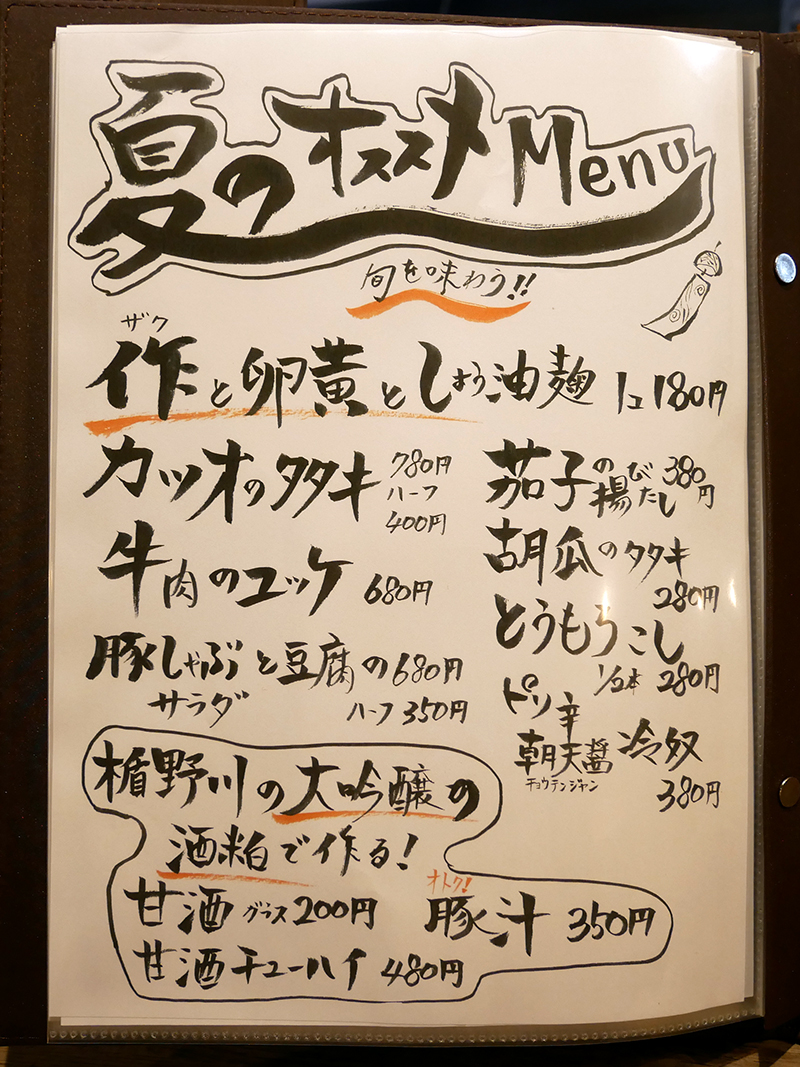 夏のオススメMenu
旬を味わう!!
ザク
作と卵黄としょう油麹 1コ180円
カツオのタタキ 780円
ハーフ
400円
牛肉のユッケ 680円
豚しゃぶと豆腐の 680円
サラダ ハーフ350円
茄子の揚びたし 380円
胡瓜のタタキ
280円
とうもろこし
1/2本 280円
ピリ辛
朝天醤 冷奴
チョウテンジャン
380円
楯野川の大吟醸の
酒粕で作る!
甘酒 グラス200円
オトク!
豚汁 350円
甘酒チューハイ 480円